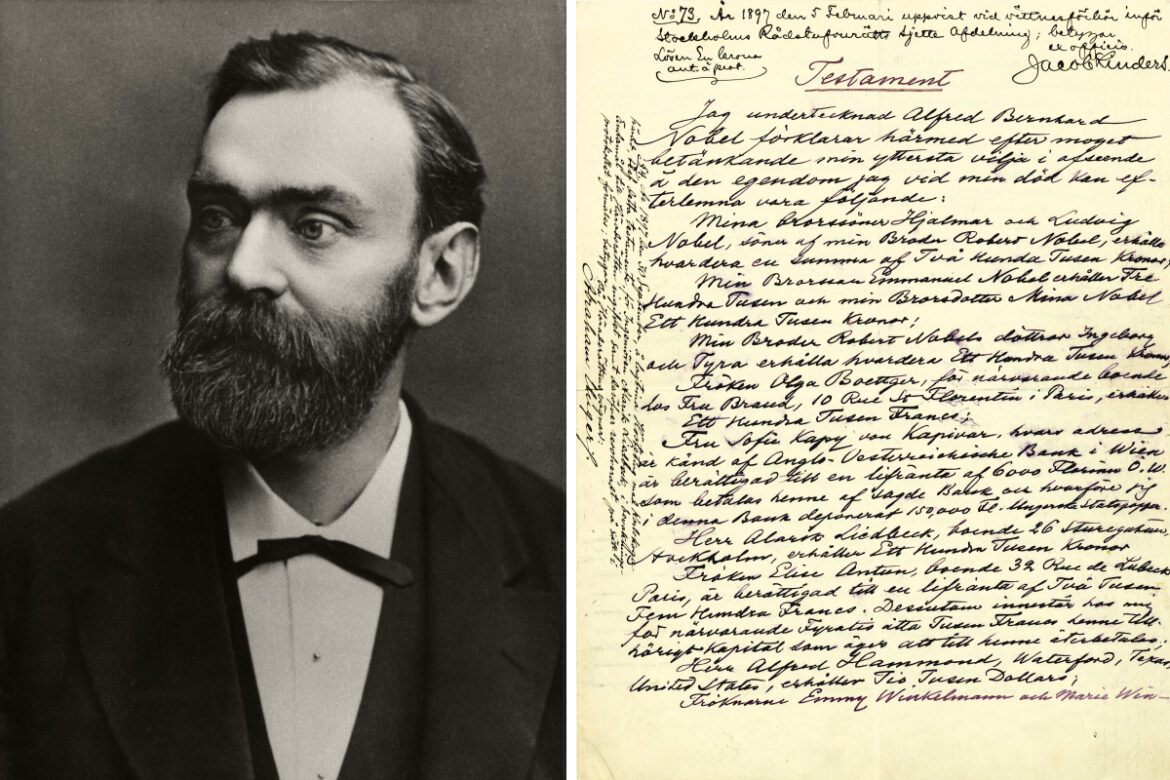 No 73. År 1897 den 5 Februari uppvist vid vittnesförhör inför
Stockholms Rådstufvurätts sjette Afdelning; betygar
Lösen En krona
ex officio.
Testament
Jag undertecknad Alfred Bernhard
Nobel förklarar härmed efter moget
betänkande min yttersta vilja i afseende
å den egendom jag vid min död kan ef-
terlemna vara följande:
Mina brorssöner Hjalmar och Ludvig
Nobel, söner af min Broder Robert Nobel, erhålla
hvardera en summa af Två Hundra Tusen Kronor;
Min Brorsson Emmanuel Nobel erhåller Tre
Hundra Tusen och min Brorsdotter Mina Nobel
Ett Hundra Tusen Kronor;
Min Broder Robert Nobels döttrar Ingeborg
och Tyra erhålla hvardera Ett Hundra Tusen Kronor,
Fröken Olga Boettger, för närvarande boende
hos Fru Brand, 10 Rue St Florentin i Paris, erhåller
Ett Hundra Tusen Francs;
Fru Sofie Kapy von Kapivar, hvars adress
är känd af Anglo-Oesterreichische Bank i Wien
är berättigad till en lifränta af 6000 Florins Ö.W.
som betalas henne af sagde Bank och hvarföre jag
i denna Bank deponerat 150,000 Fl. i Ungerska Statspapper.
Herr Alarik Liedbeck, boende 26 Sturegatan,
Stockholm, erhåller Ett Hundra Tusen Kronor
Fröken Elise Antun, boende 32 Rue de Lubeck
Paris, är berättigad till en lifränta af Två Tusen
Fem Hundra Francs. Dessutom innestår hos mig
för närvarande Fyratio åtta Tusen Francs henne till-
hörigt Kapital som äger att till henne återbetalas;
Herr Alfred Hammond, Waterford, Texas,
United States, erhåller Tio Tusen Dollars;
Fröknarne Emmy Winkelmann och Marie Win-